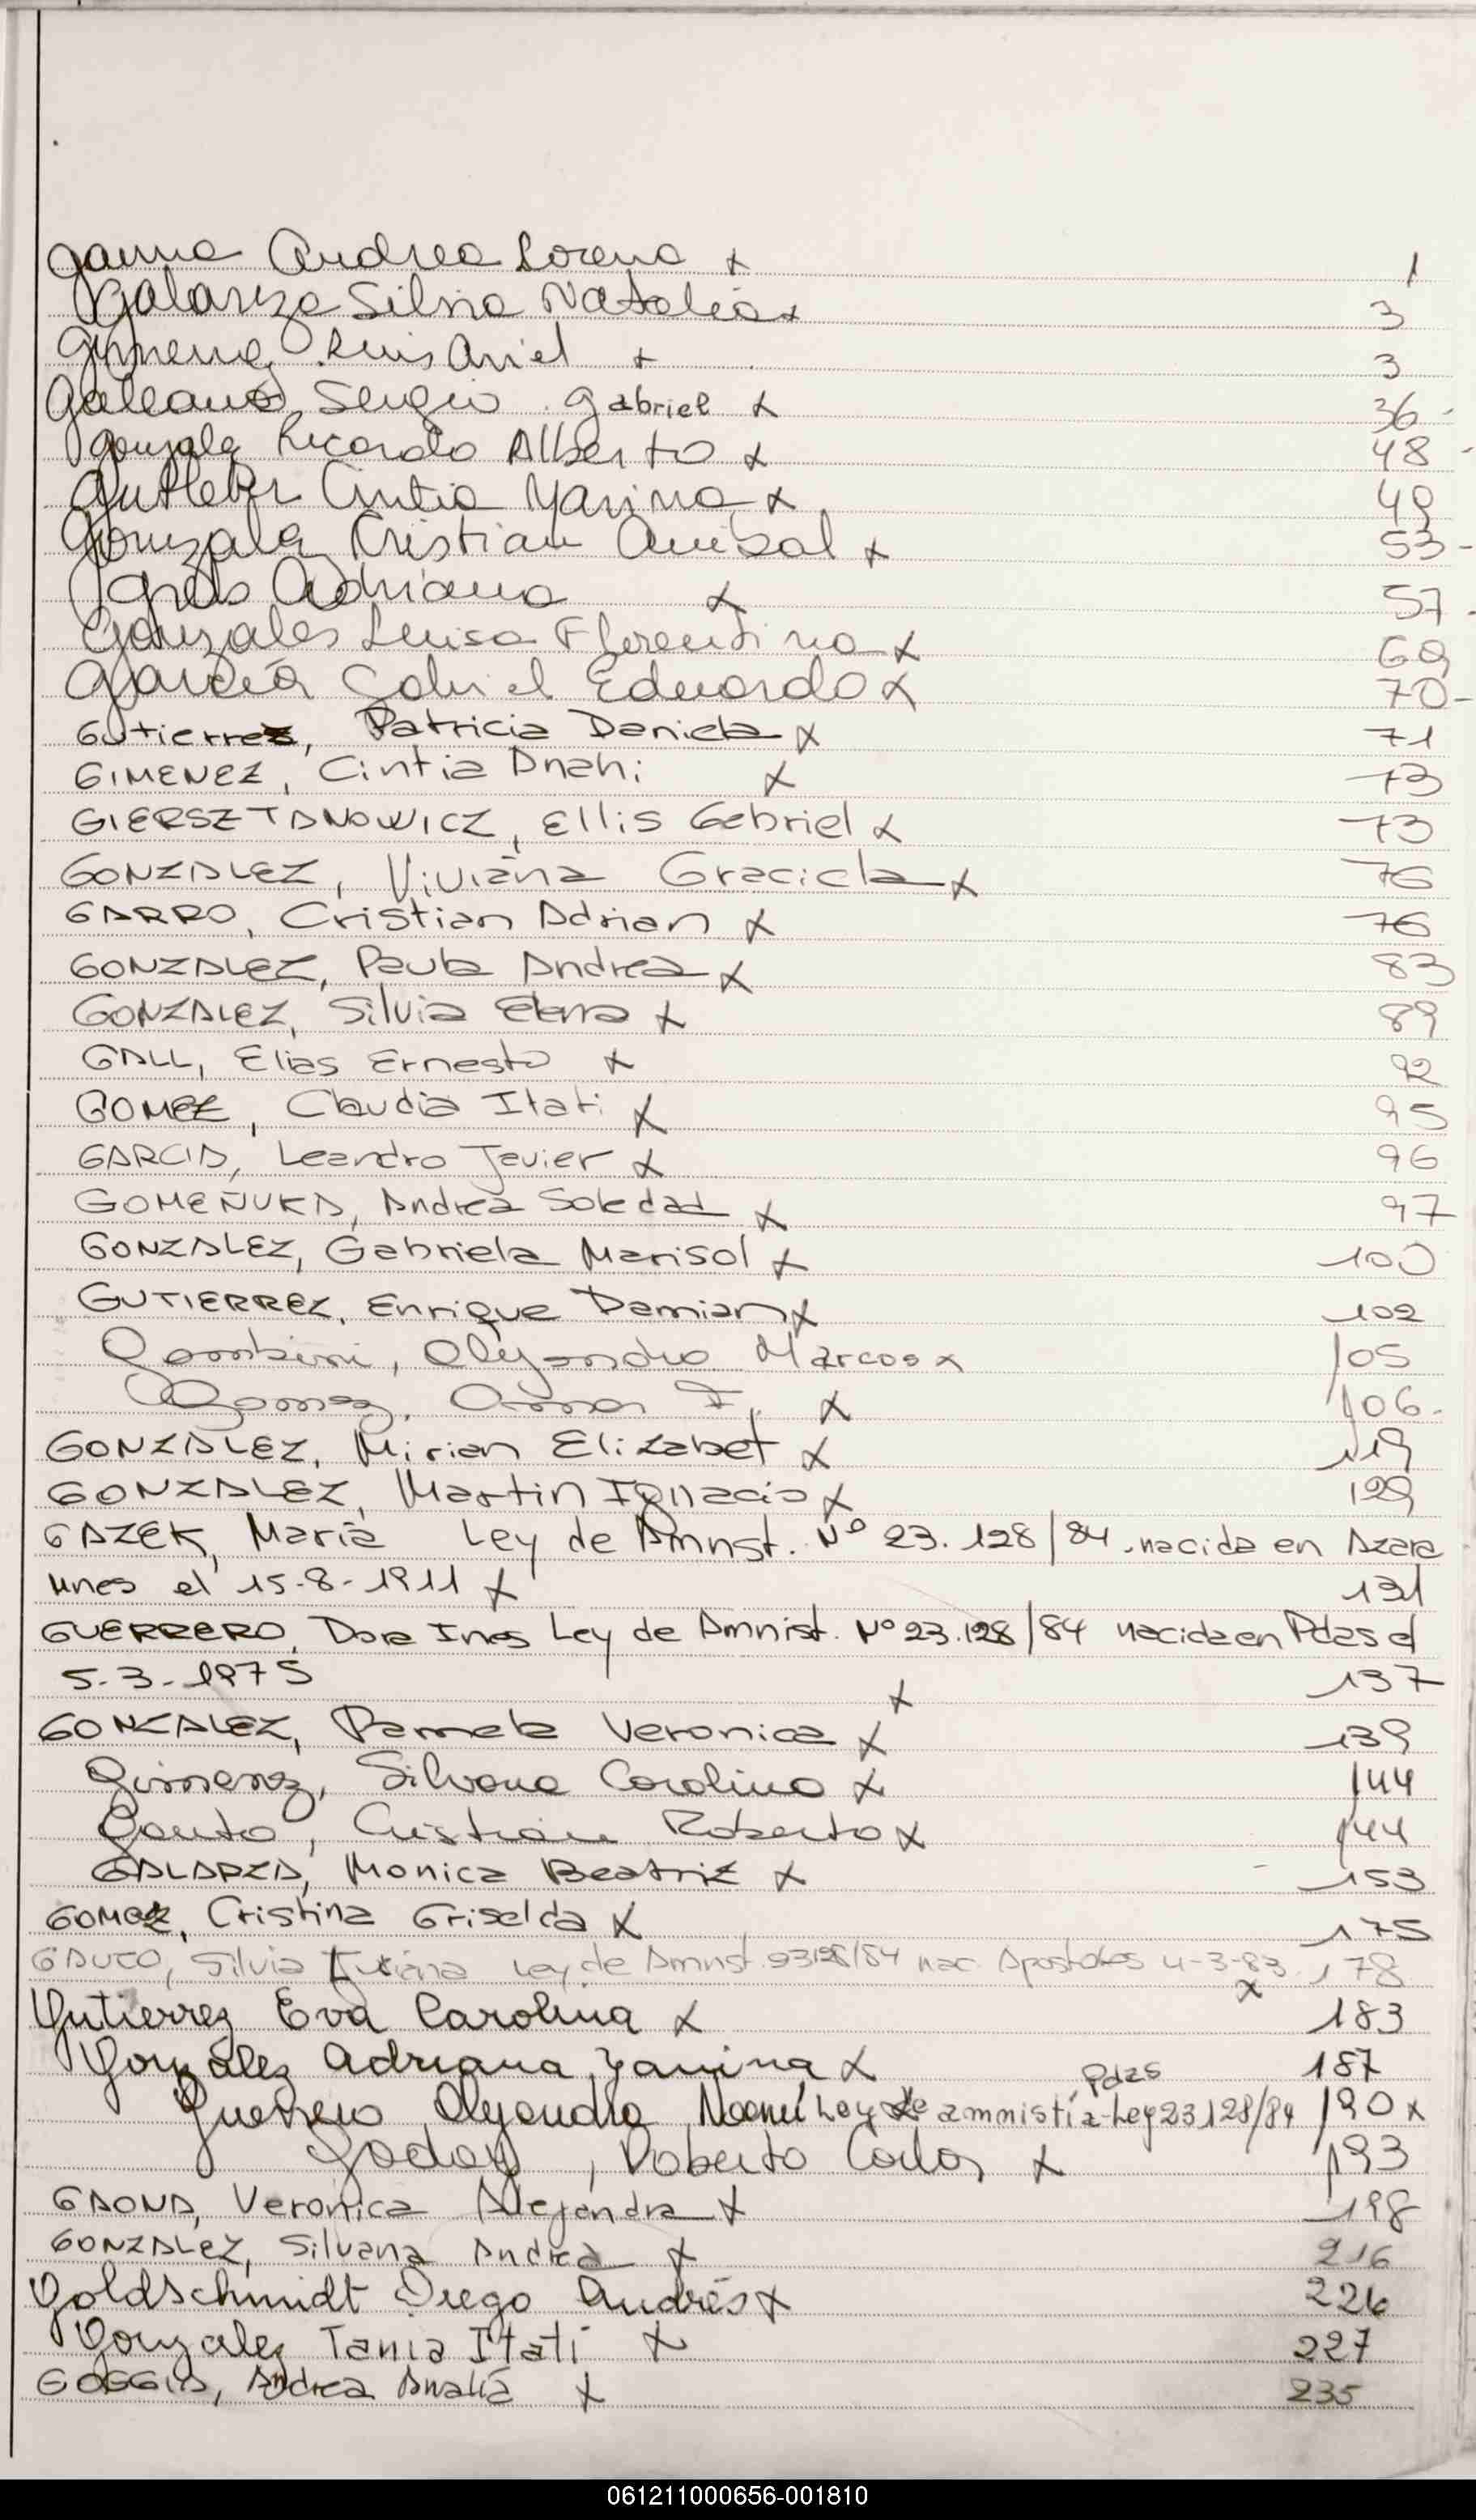 Gauna Andrea Lorena x 1
Galarza Silvia Natalia x 3
Gimenez Luis Ariel x 3
Galeano, Sergio Gabriel x 36-
Gonzalez Ricardo Alberto x 48-
Cintia Marina x 49
Gonzalez Cristian Anibal x 53-
Adriana x 57-
Gonzales Luisa Florentina x 69
Garcia Gabriel Eduardo x 70-
Gutierrez, Patricia Daniela x 71
GIMENEZ, Cintia Anahi x 73
GIERSZTANOWICZ, Ellis Gabriel x 73
GONZALEZ, Viviana Graciela x 76
GARRO, Cristian Adrian x 76
GONZALEZ, Paula Andrea x 83
GONZALEZ, Silvia Elena x 89
GALL, Elias Ernesto x 92
GOMEZ, Claudia Itati x 95
GARCIA, Leandro Javier x 96
GOMEÑUKA, Andrea Soledad x 97
GONZALEZ, Gabriela Marisol x 100
GUTIERREZ, Enrique Damian x 102
Gambini, Alejandro Marcos x 105
Gomez, x 106.
GONZALEZ, Mirian Elizabet x 119
GONZALEZ, Martin Ignacio x 129
GAZEK, Maria Ley de Amnst. Nº 23.128/84. nacida en Azara
Mnes el 15-8-1911 x 131
GUERRERO, Dora Ines Ley de Amnist. Nº 23.128/84 nacida en Pdas el
5-3-1975 x 137
GONZALEZ, Pamela Veronica x 139
Gimenez, Silvana Carolina x 144
Gauto, Cristian Roberto x 144
GALARZA, Monica Beatriz x 153
GOMEZ, Cristina Griselda x 175
GAUTO, Silvia Ley de Amnst. 23128/84 nac. Apostoles 4-3-83 x 178
Gutierrez Eva Carolina x 183
Gonzalez Adriana Yanina x 187
Pdas
Guerrero Alejandra Noemí Ley de amnistía-Ley 23128/84 190 x
Godoy, Roberto Carlos x 193
GAONA, Veronica Alejandra x 198
GONZALEZ, Silvana Andrea x 216
Goldschmidt Diego Andrés x 226
Gonzalez Tania Itatí x 227
GOGGIA, Andrea Analía x 235
061211000656-001810